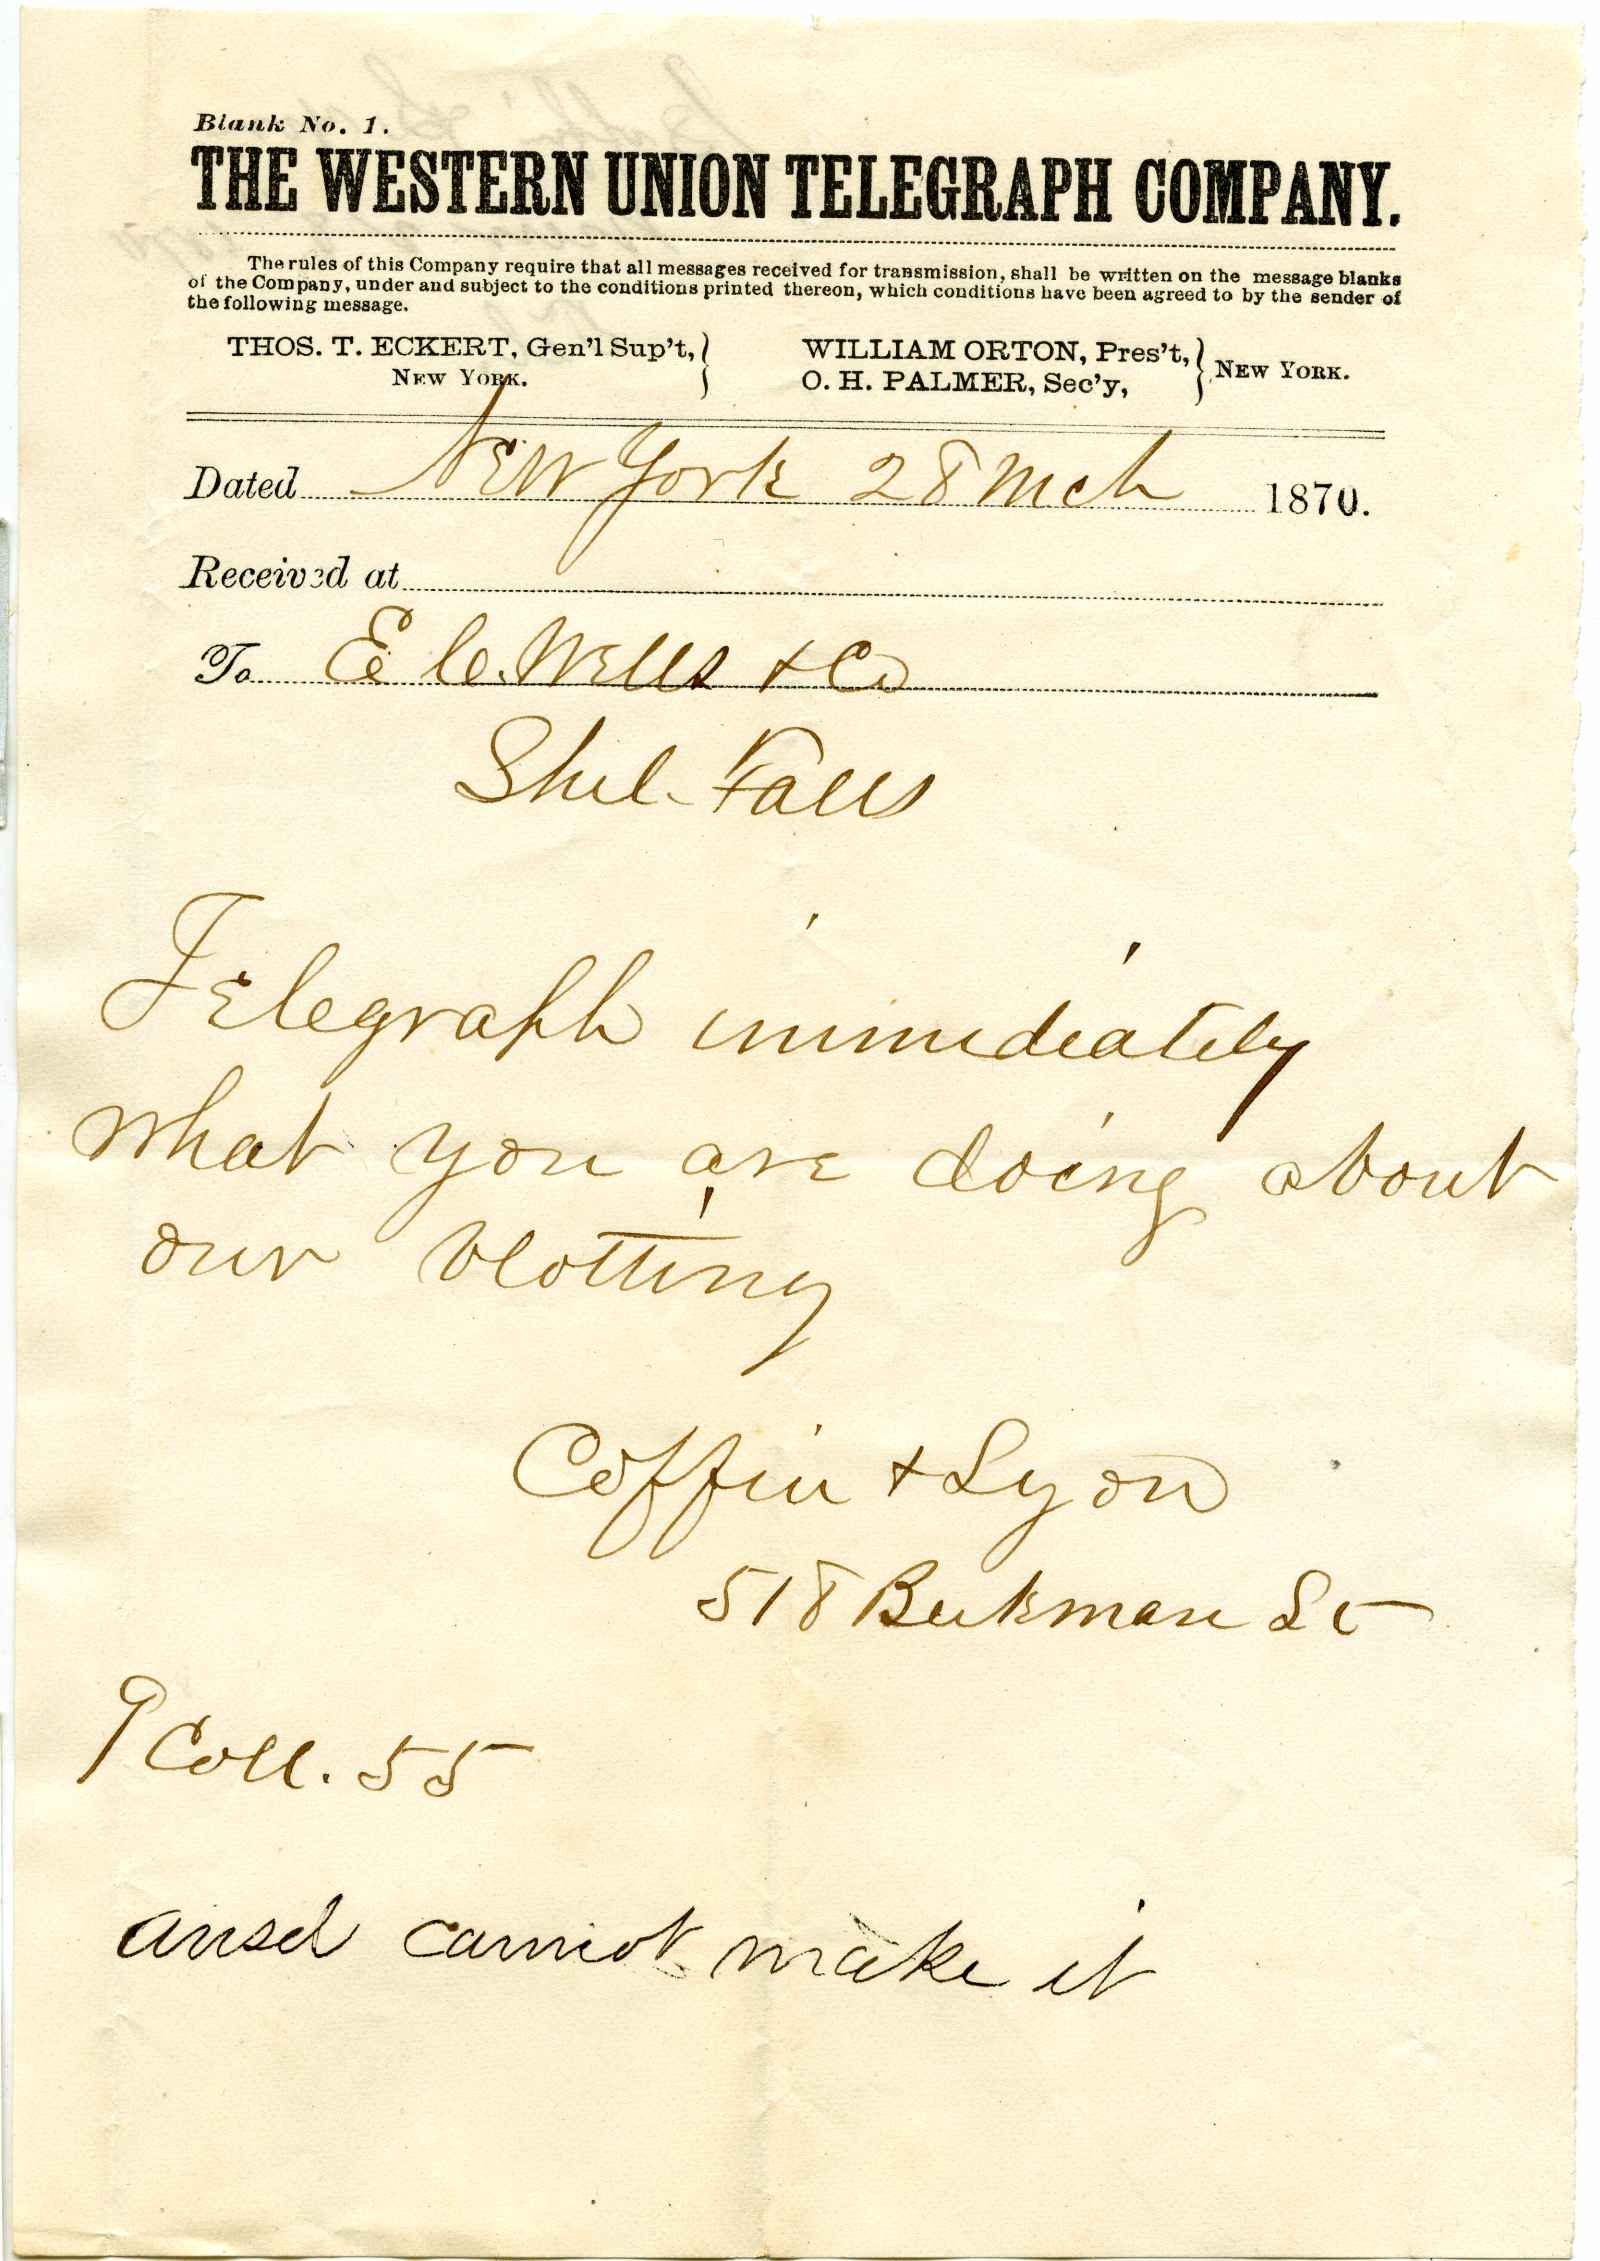 Blank No. 1.
THE WESTERN UNION TELEGRAPH COMPANY.
The rules of this Company require that all messages received for transmission, shall be written on the message blanks
of the Company, under and subject to the conditions printed thereon, which conditions have been agreed to by the sender of
the following message.
THOS. T. ECKERT, Gen'l Sup't,
NEW YORK.
WILLIAM ORTON, Pres't,
O. H. PALMER, Sec'y,
NEW YORK.
Dated New York 28 Mch 1870.
Received at
To E C. Wells + Co
Shel. Falls
Telegraph immediately
what you are doing about
our blotting
Coffin + Lyon
518 Beekman St
9 Coll. 55
Ansd cannot make it